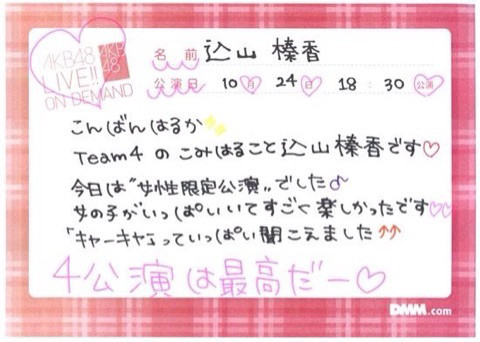 AKB48
LIVE!!
ON DEMAND
AKB
48
名前 込山 榛香
公演日 10月 24日 18:30 公演
こんばんはるか
Team4 の こみはること 込山榛香です♡
今日は"女性限定公演"でした♪
女の子がいっぱいいてすごく楽しかったです♡♡
「キャーキャー」っていっぱい聞こえました↑↑
4公演は最高だー♡
DMM.com